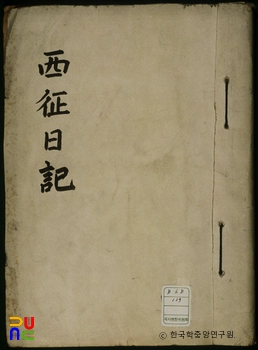 西征日記
ⓒ 한국학중앙연구원